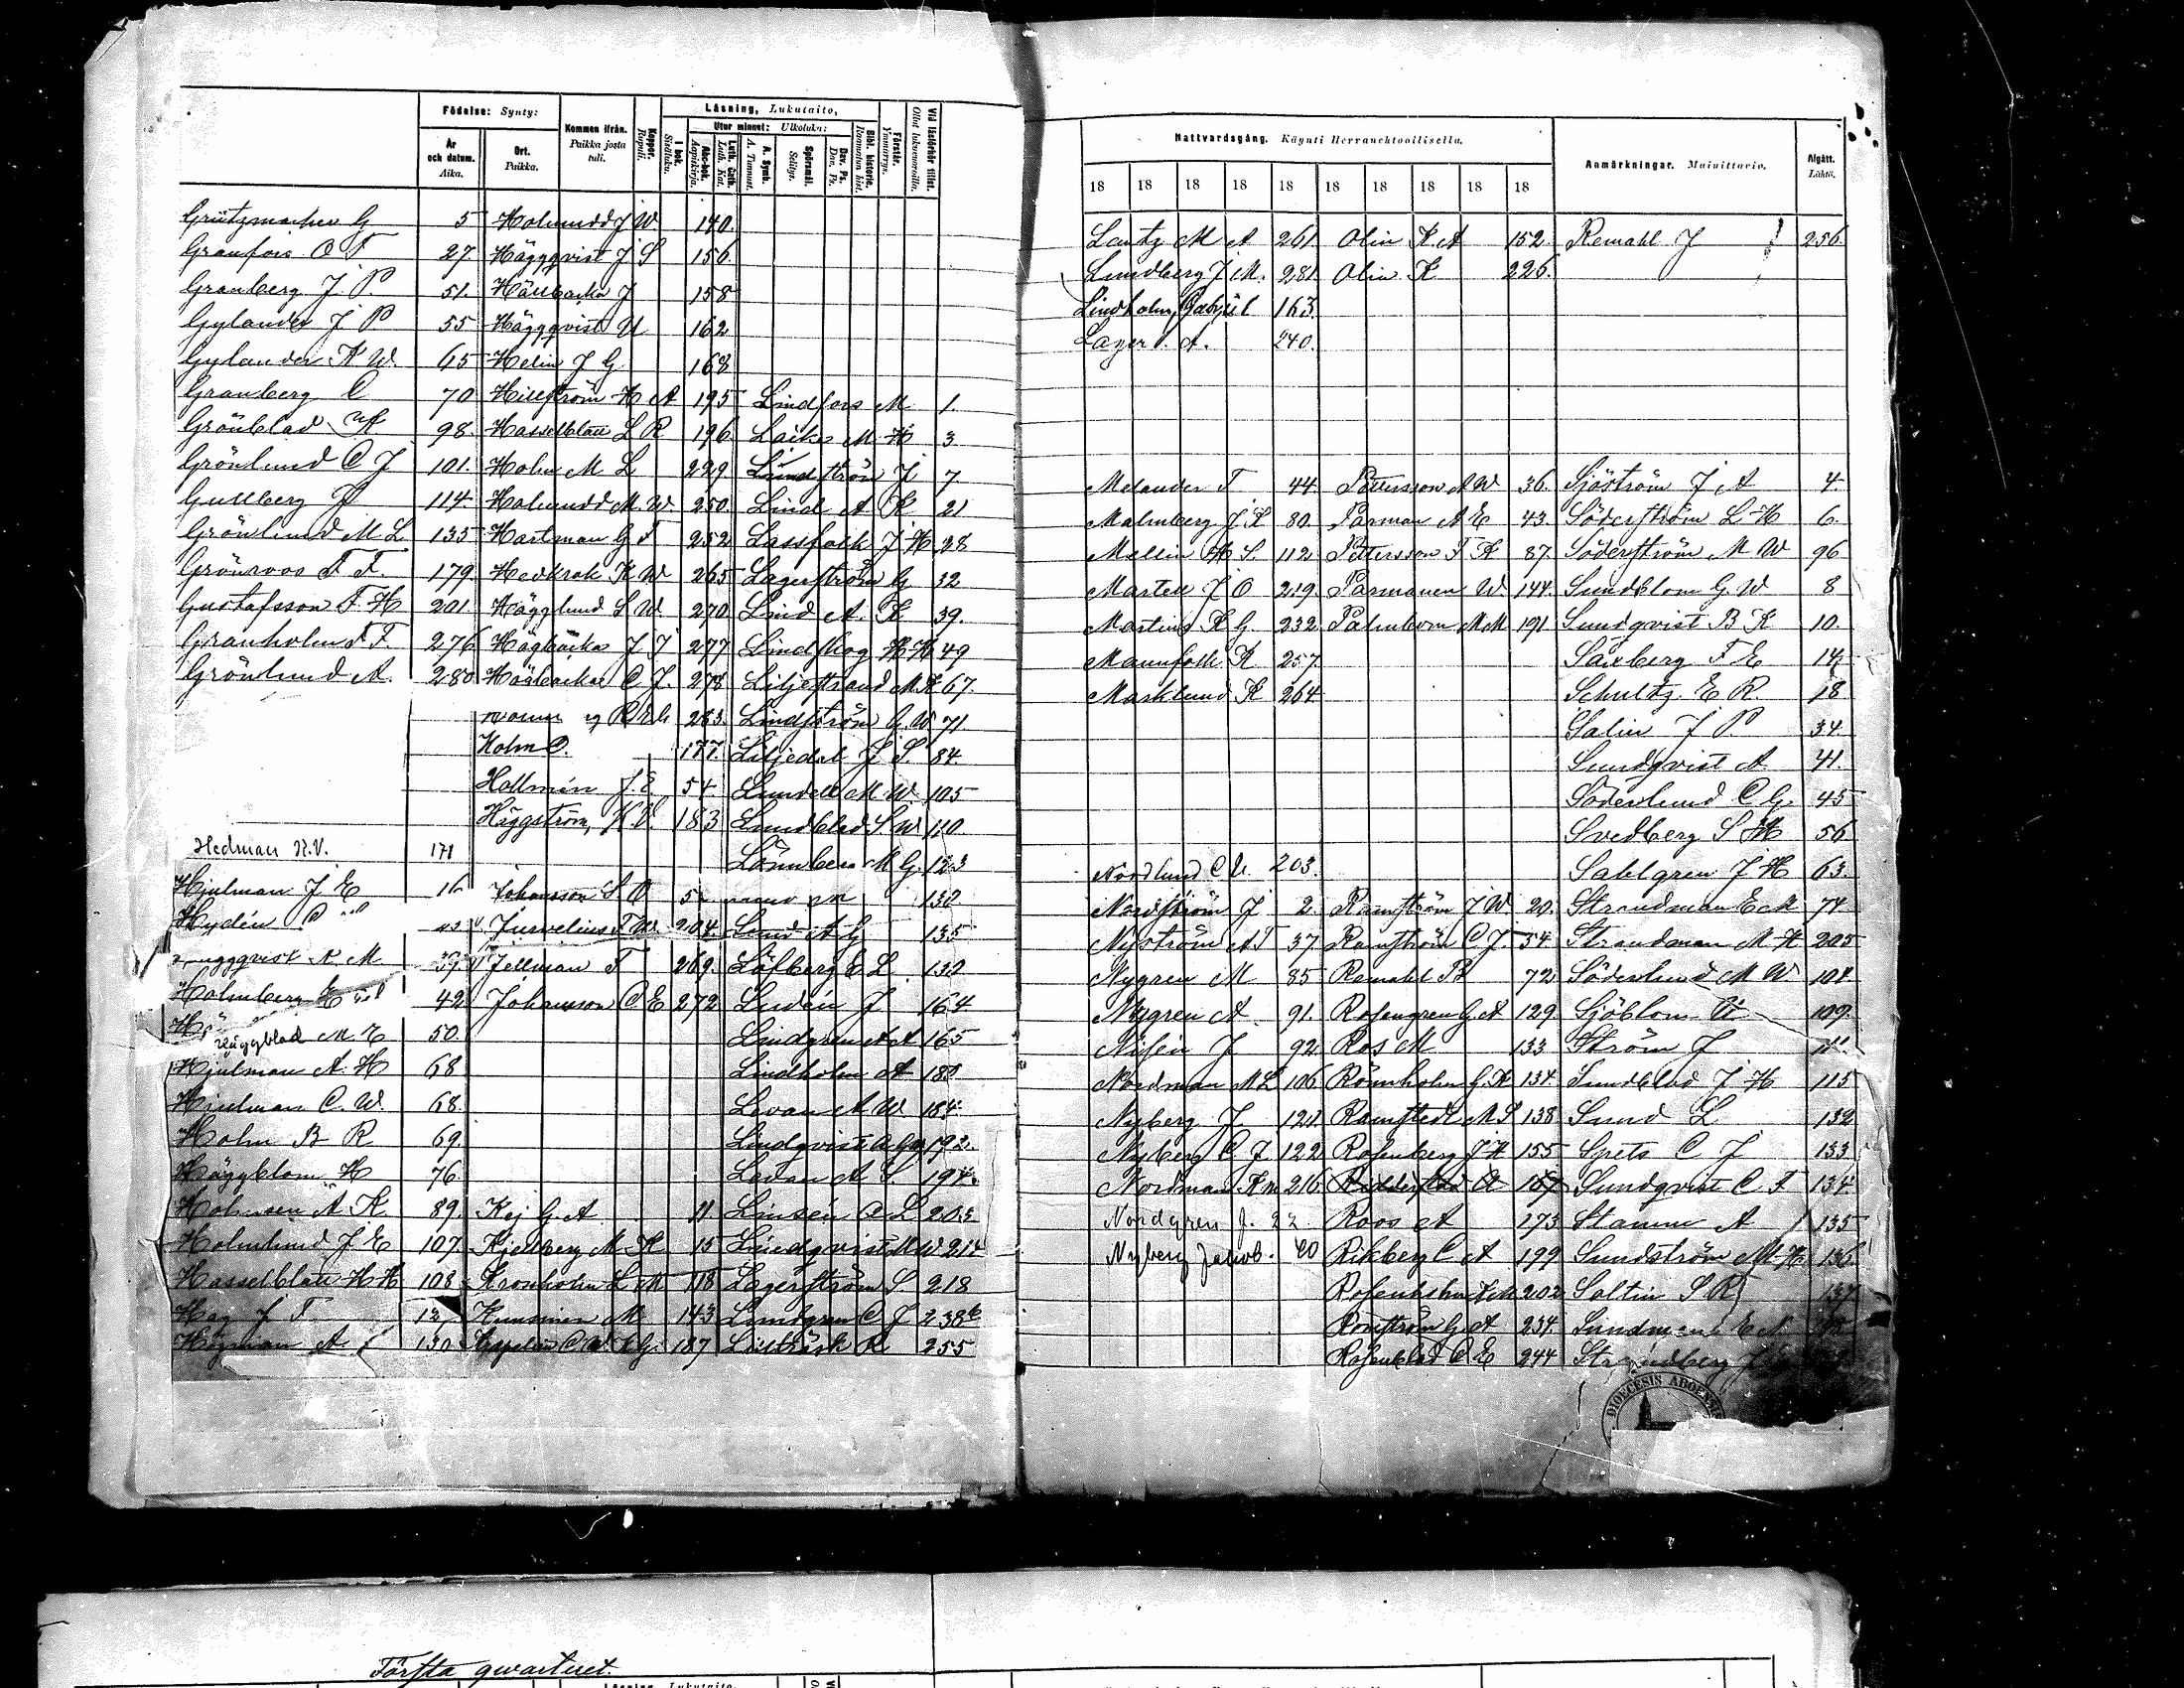 Födelse: Synty:
År och datum. Aika.
Ort. Paikka.
Kommen ifrån. Paikka josta tuli.
Koppor. Rupuli.
Läsning, Lukutaito,
I bok. Sisäluku.
Utur minnet: Ulkoluku:
Abc-bok. Aapiskirja.
Luth. Cath. Luth. Kat.
A. Symb. A. Tunnust.
Spörsmål. Selitys.
Dav. Ps. Dav. Ps.
Bibl. historia. Raamatun hist.
Förstår. Ymmärrys.
Vid läsförhör tillst. Ollut lukuvuoroilla.
Grützmacher G 5
Granfors O F 27
Granberg J. P. 51.
Gylander J P 55
Gylander K W. 65
Granberg C 70
Grönblad 98.
Grönlund C J 101.
Gullberg J 114.
Grönlund M L. 135
Grönroos F F. 179
Gustafsson F. H 201
Granholm F F. 276
Grönlund A. 280
Hedman N. V. 171
Hjulman J E 16
Hydén C
Holmberg E 42
Häggblad M E 50.
Hjulman A. H 68
Hjulman C. W. 68.
Holm B R 69.
Häggblom H 76.
Holmsen A K 89.
Holmlund J E 107.
Hasselblatt H H 108
Hag J F
Högman A. 130
Holmudd J W 140.
Häggqvist J S 156.
Hällbacka J 158
Häggqvist U 162
Helin J G 168
Hillström H A 195
Hasselblatt L R 196
Holm M. L 229.
Holmudd M. W 250.
Hartman G F 252
Hedkrok K W 265
Hägglund S W. 270
Högbacka J J 277
Högbacka C J. 278
283.
Holm O. 177.
Hallmén J. E 54
Häggström, K V. 183
Johansson S O
Jurvelius F W. 204
Jellman F 269.
Johansson C E 272
Kej G A 11
Kjellberg M K 15
Kronholm L M 118
Kunsinen M 143
187
Lindfors M 1.
Laikes M H 3
Lindström J 7
Lind A K 21
Lassfolk J H 28
Lagerström G 32
Lind A. K 39.
Lindskog H H 49
Liljestrand M. K 67.
Lindström G. W 71
Liljedal J S. 84
Lundell M W. 105
Lundblad S W 110
Lönnberg M G. 123
130
Lund A G 135
Löfberg E L 150
Ludén J 164
Lindgren A A 165
Lindholm A 180
Levan A W 184
Lindqvist 192.
Levan A S 194.
Linsén O L 203
Lindqvist M W 214
Lagerström S. 218
Lindgren C J 238
Lillträsk K 255
Nattvardsgång. Käynti Herranehtoollisella.
18 18 18 18 18 18 18 18 18 18
Anmärkningar. Mainittavia.
Afgått. Lähtö.
Lantz M A 261
Lundberg J M. 281
Lindholm, Gabriel 163.
Lager A. 240.
Olin K A 152.
Olin K 226.
Remahl J 256
Melander F 44
Malmberg J. K 80
Mellin H S. 112
Martell J O 219.
Martins K G. 232
Mannfolk K 257
Marklund K 264
Nordlund C E 203.
Nordström J 2
Nyström A F 37
Nygren M 85
Nygren A 91.
Nisén J 92
Nordman M L 106
Nyberg J 121
Nyberg C J 122
Nordman K m 216
Nordgren J. 22
Nyberg Jakob. 40
Pettersson A W 36.
Parman A E 43.
Pettersson F K 87.
Parmanen W. 144.
Palmbom M M 191
Ramström J W 20.
Ramström C J. 54
Remahl B 72
Rosengren G A 129
Ros M 133
Rönnholm G. K 134
Ramstedt M S 138
Rosenberg J H 155
Ridderstad A 167
Roos A 173
Rikberg C A 199
Rosenholm K M 202
Ramström G A 234.
Rosenblad C E 244
Sjöström J A 4.
Söderström L H 6.
Söderström M W 96
Sundblom G. W 8
Sundqvist B K 10.
Saxberg F E 14
Schultz. E R. 18
Salin J P 34
Sundqvist A 41.
Söderlund C G. 45
Svedberg S H 56
Sahlgren J H 63.
Strandman E M 74
Strandman M H 205
Söderlund M W. 104
Sjöblom U 109
Ström J
Sundblad J H 115
Sund L 132
Spets C J 133
Sundqvist C F 134
Stamm A 135
Sundström M. H 136
Saltin S R 137
Sundman E
Strandberg J
DIOECESIS ABOENSIS
Första qwarteret.
Läsning, Lukutaito.